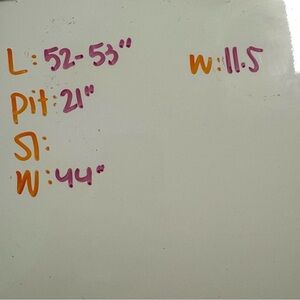 L: 52-53"
W: 11.5
Pit: 21"
Sl:
W: 44"